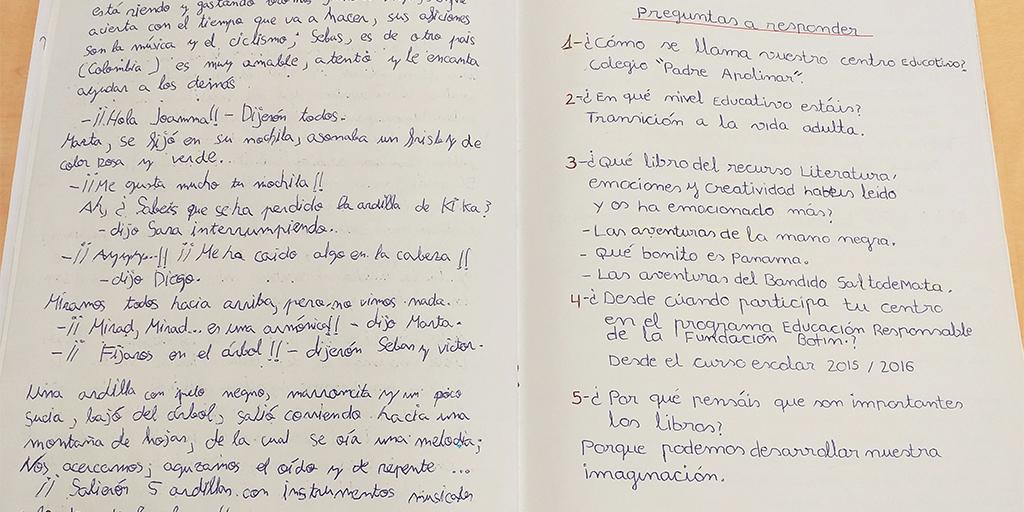 está riendo y gastando
acierta con el tiempo que va a hacer, sus aficiones
son la música y el ciclismo; Sebas, es de otro pais
(Colombia) es muy amable, atento y le encanta
ayudar a los demás
-¡¡Hola Joamna!! - Dijerón todos.
Marta, se fijó en su mochila, asomaba un frisby de
color rosa y verde..
-¡¡Me gusta mucho tu mochila!!
Ah, ¿Sabeis que se ha perdido la ardilla de Kika?
- dijo Sara interrumpiendo..
-¡¡Ayyyyy...!! ¡¡Me ha caido algo en la cabeza!!
- dijo Diego.
Miramos todos hacia arriba, pero no vimos nada.
-¡¡ Mirad, Mirad... es una armónica!! - dijo Marta.
-¡¡ Fijaros en el árbol!! - dijerón Sebas y victor.
Una ardilla con pelo negro, marroncita y un poco
sucia, bajó del árbol, salió corriendo hacia una
montaña de hojas, de la cual se oía una melodía;
Nos acercamos; aguzamos el oído y de repente ...
¡¡ Salierón 5 ardillas con instrumentos musicales
Preguntas a responder
1-¿Cómo se llama vuestro centro Educativo?
Colegio "Padre Apolinar".
2-¿En qué nivel Educativo estáis?
Transición a la vida adulta.
3-¿Qué libro del recurso Literatura,
emociones y creatividad habéis leido
y os ha emocionado más?
- Las aventuras de la mano negra.
- Qué bonito es Panama.
- Las aventuras del Bandido Saltodemata.
4-¿Desde cúando participa tu centro
en el programa Educación Responsable
de la Fundación Botín.?
Desde el curso escolar 2015 / 2016
5-¿Por qué pensáis que son importantes
los libros?
Porque podemos desarrollar nuestra
imaginación.